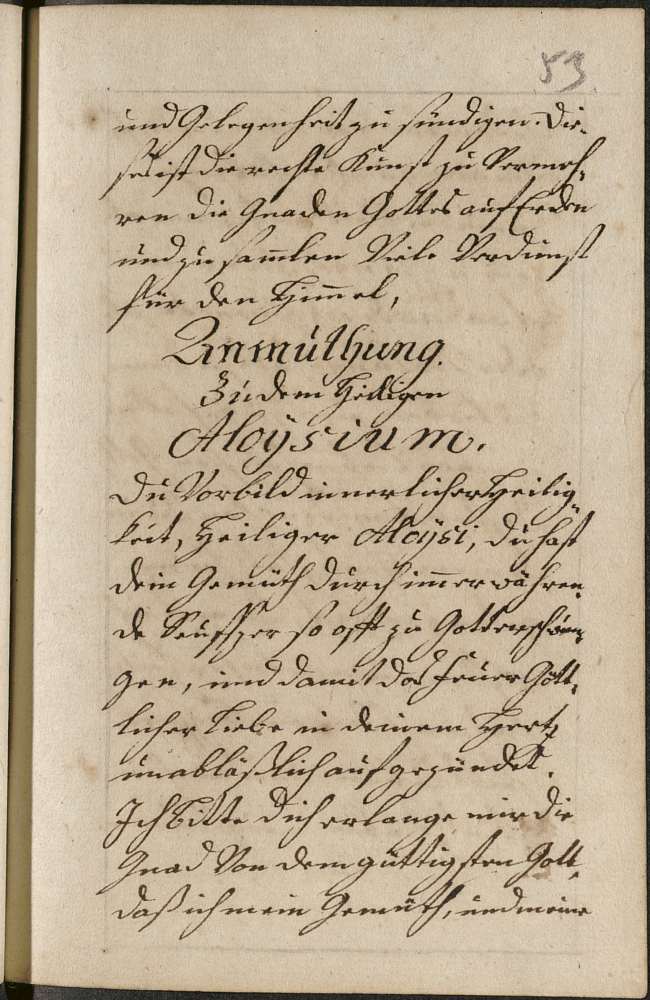 53
und Gelegenheit zu sündigen. Die-
ses ist die rechte Kunst zu Vermeh-
ren die Gnaden Gottes auf Erden
und zu sam̄len Viele Verdienst
für den Him̄el,
Anmüthung.
Zu dem Heiligen
Aloÿsium.
Du Vorbild innerlicher Heilig-
keit, Heiliger Aloÿsi, du hast
dein Gemüth durch im̄erwähren-
de Seuffzer so offt zu Gott erschwun-
gen, und damit das Feuer Gött-
licher Liebe in deinem Hertz
unabläßlich aufgezündet.
Ich bitte dich erlange mir die
Gnad Von dem güttigsten Gott,
daß ich mein Gemüth, und meine